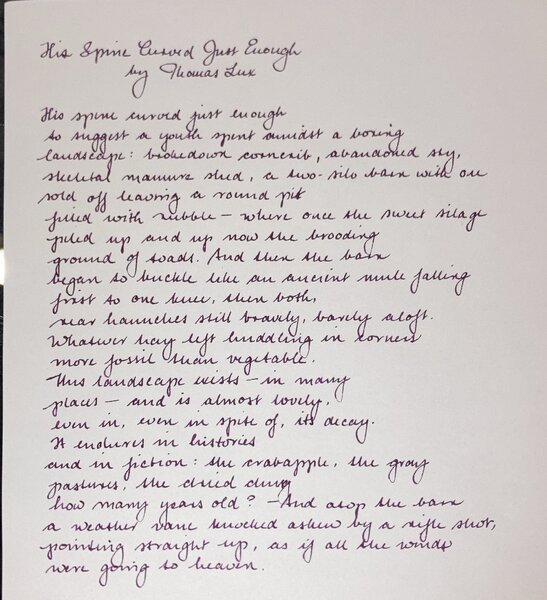 His Spine Curved Just Enough
by Thomas Lux
His spine curved just enough
to suggest a youth spent amidst a boring
landscape: brokedown corncrib, abandoned sty,
skeletal manure shed, a two-silo barn with one
sold off leaving a round pit
filled with rubble – where once the sweet silage
piled up and up now the brooding
ground of toads. And then the barn
began to buckle like an ancient mule falling
first to one knee, then both,
rear haunches still bravely, barely aloft.
Whatever hay left huddling in corners
more fossil than vegetable.
This landscape exists – in many
places – and is almost lovely,
even in, even in spite of, its decay.
It endures in histories
and in fiction: the crabapple, the gray
pastures, the dried dung
how many years old? – And atop the barn
a weather vane knocked askew by a rifle shot,
pointing straight up, as if all the winds
were going to heaven.